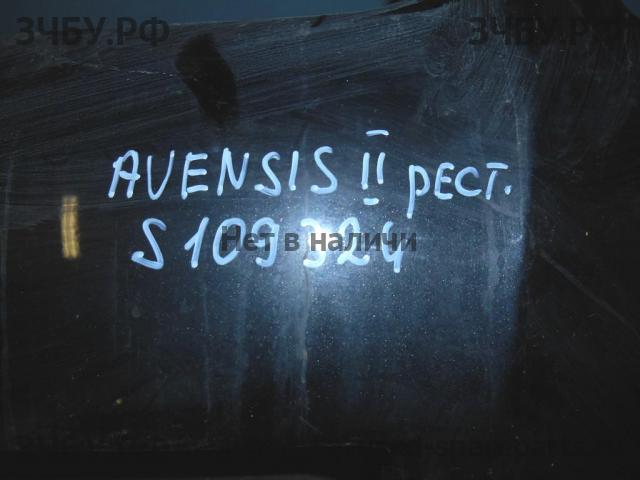 ЗЧБУ.РФ ЗЧБУ.РФ
AVENSIS II рест.
S109324
Нет в наличи